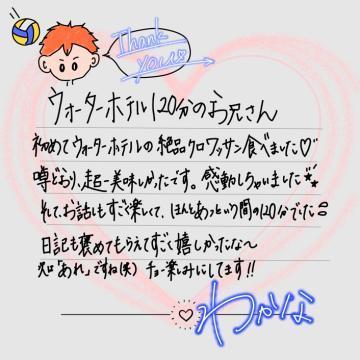 Thank you♡
ウォーターホテル120分のお兄さん
初めてウォーターホテルの絶品クロワッサン食べました♡
噂どおり、超ー美味しかったです。感動しちゃいました
それて、お話しもすごく楽しくて、ほんとあっという間の120分でした
日記も褒めてもらえてすごく嬉しかったな〜
次は「あれ」ですね(笑) チョー楽しみにしてます!!
わかな